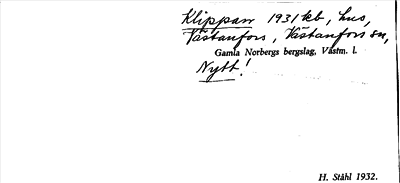 Klippan 1931 kb, hus,
Västanfors, Västanfors sn,
Gamla Norbergs bergslag, Västm. l.
Nytt!
H. Ståhl 1932.